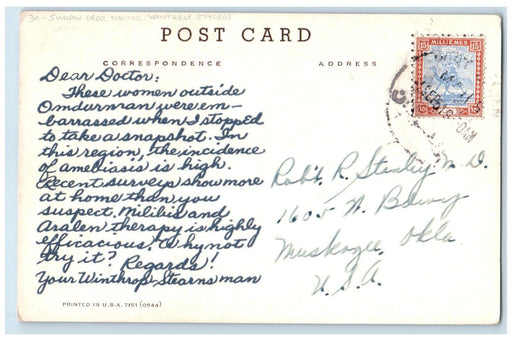 30- SUDAN DEAR DOCTOR WINTHROP STEARNS
POST CARD
CORRESPONDENCE
ADDRESS
15 MILLIEMES 15
Dear Doctor:
These women outside
Omdurman were em-
barrassed when I stopped
to take a snapshot. In
this region, the incidence
of amebiasis is high.
Recent surveys show more
at home than you
suspect. Milibis and
Aralen therapy is highly
efficacious. Why not
try it? Regards!
Your Winthrop-Stearns man
Rob't. R. Stanley M.D.
1605 N. Boving
Muskogee, Okla.
U.S.A.
PRINTED IN U.S.A. 7151 (0544)